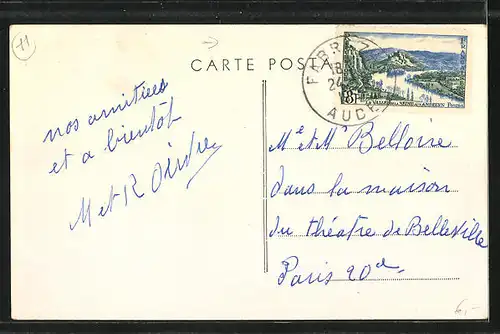 11
CARTE POSTA
FABR
18
24
AUDE
8F
LA VALLÉE DE LA SEINE AUX ANDELYS
nos amitiés
et a bientôt
M et R
Me et Mr Belloire
dans la maison
du théâtre de Belleville
Paris 20e
6,-